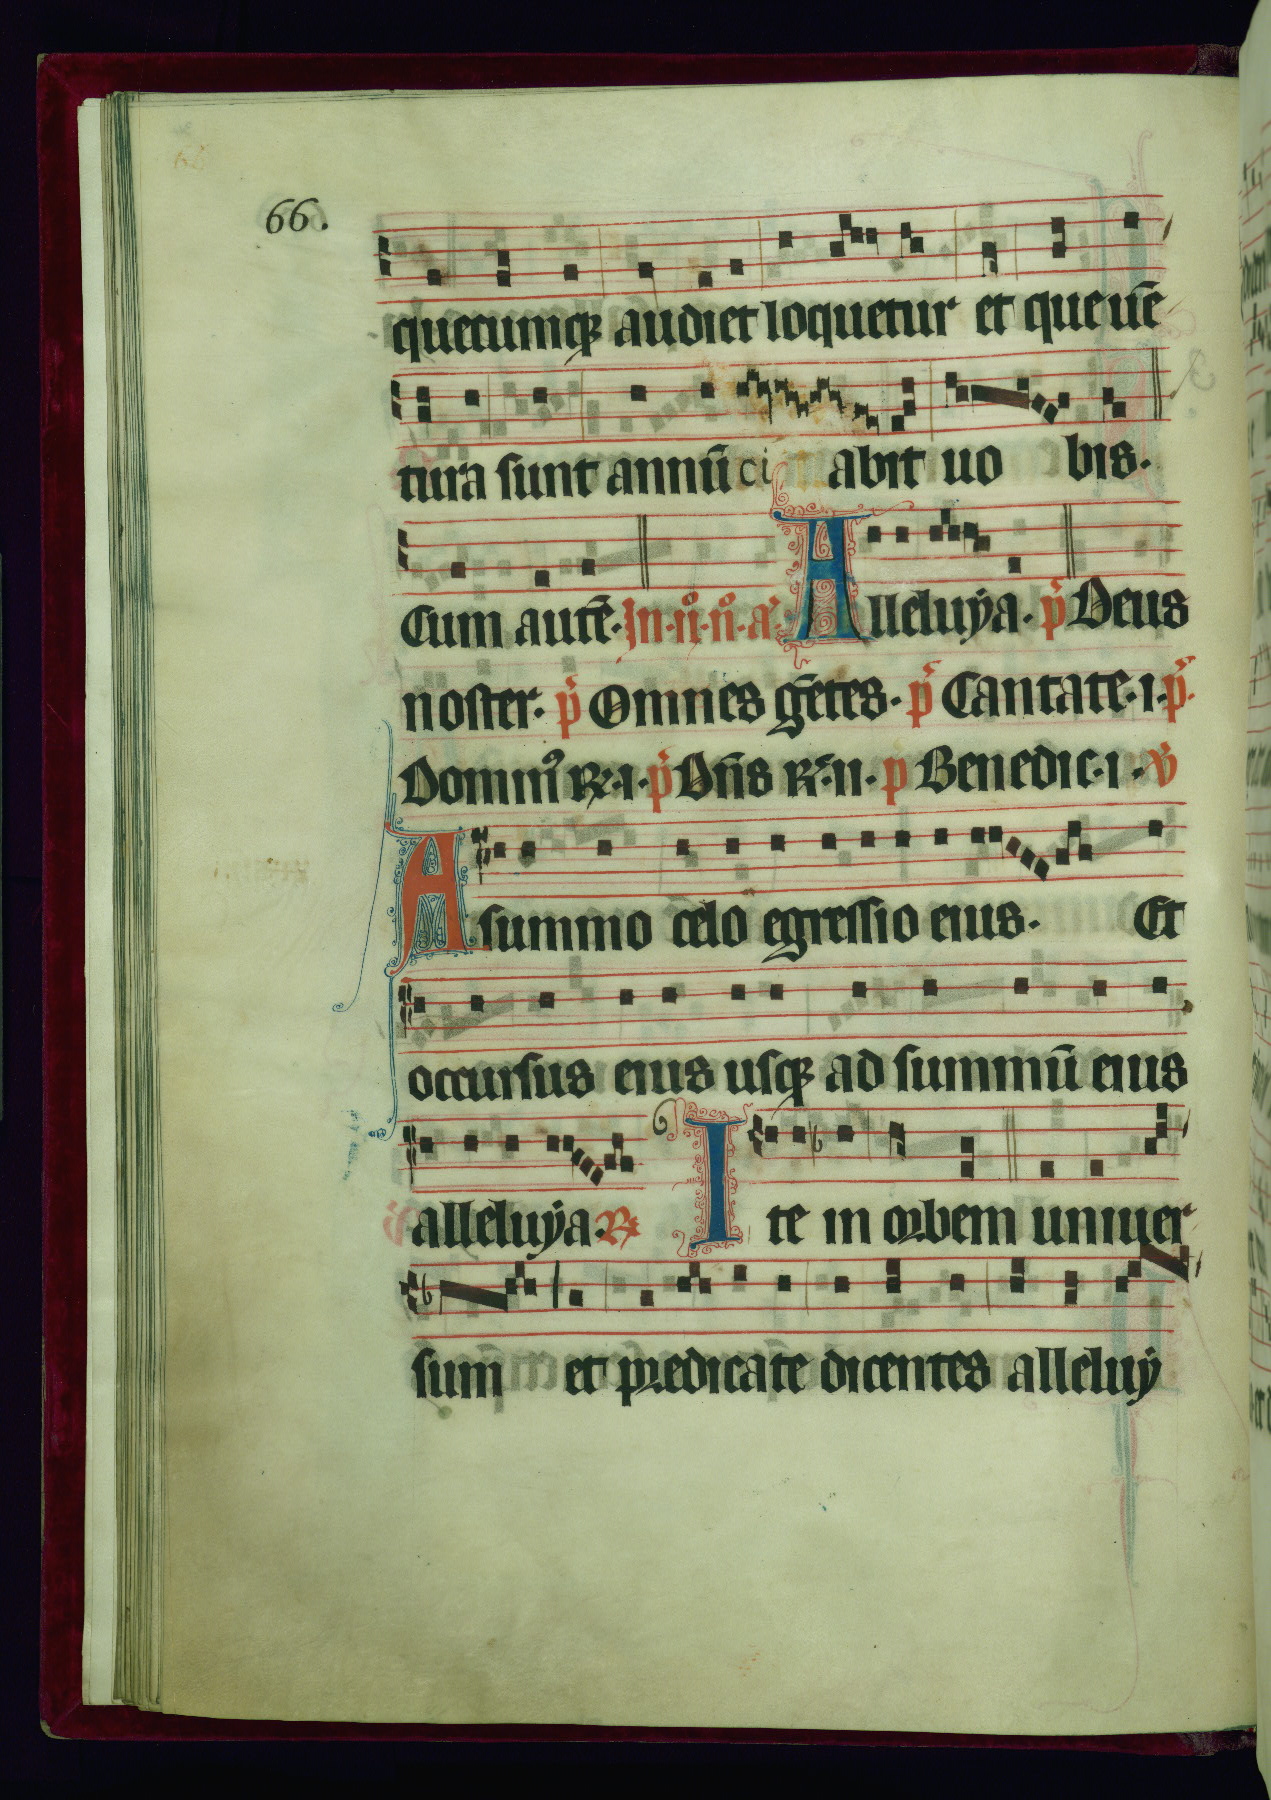 66.
quecumqꝫ audiet loquetur et que uē
tura sunt annūci abit uo bis.
Cum autē. In.ii̊.n̊.a̅. Alleluya. p̄ Deus
noster. p̄ Omnes gētes. p̄ Cantate.i.p̄.
Domin᷒ R̄.i.p̄ Dn̄s R̄.ii. p̄ Benedic.i. ꝟ
A summo celo egressio eius. Et
occursus eius usqꝫ ad summū eius
alleluya. ℟ Ite in orbem uniuer
sum et predicate dicentes alleluy